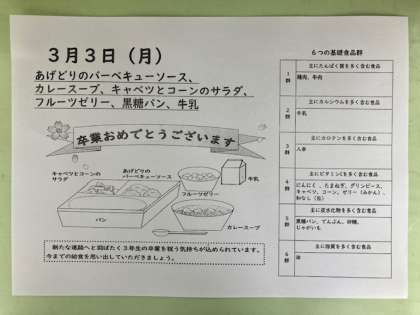 3月3日（月）
あげどりのバーベキューソース、
カレースープ、キャベツとコーンのサラダ、
フルーツゼリー、黒糖パン、牛乳
卒業おめでとうございます
キャベツとコーンの
サラダ
あげどりの
バーベキューソース
牛乳
フルーツゼリー
パン
カレースープ
新たな進路へと羽ばたく３年生の卒業を祝う気持ちが込められています。
今までの給食を思い出していただきましょう。
６つの基礎食品群
1群
主にたんぱく質を多く含む食品
鶏肉、牛肉
2群
主にカルシウムを多く含む食品
牛乳
3群
主にカロテンを多く含む食品
人参
4群
主にビタミンCを多く含む食品
にんにく、たまねぎ、グリンピース、
キャベツ、コーン、ゼリー（みかん）、
5群
主に炭水化物を多く含む食品
黒糖パン、でんぷん、砂糖、
じゃがいも
6群
主に脂質を多く含む食品
油